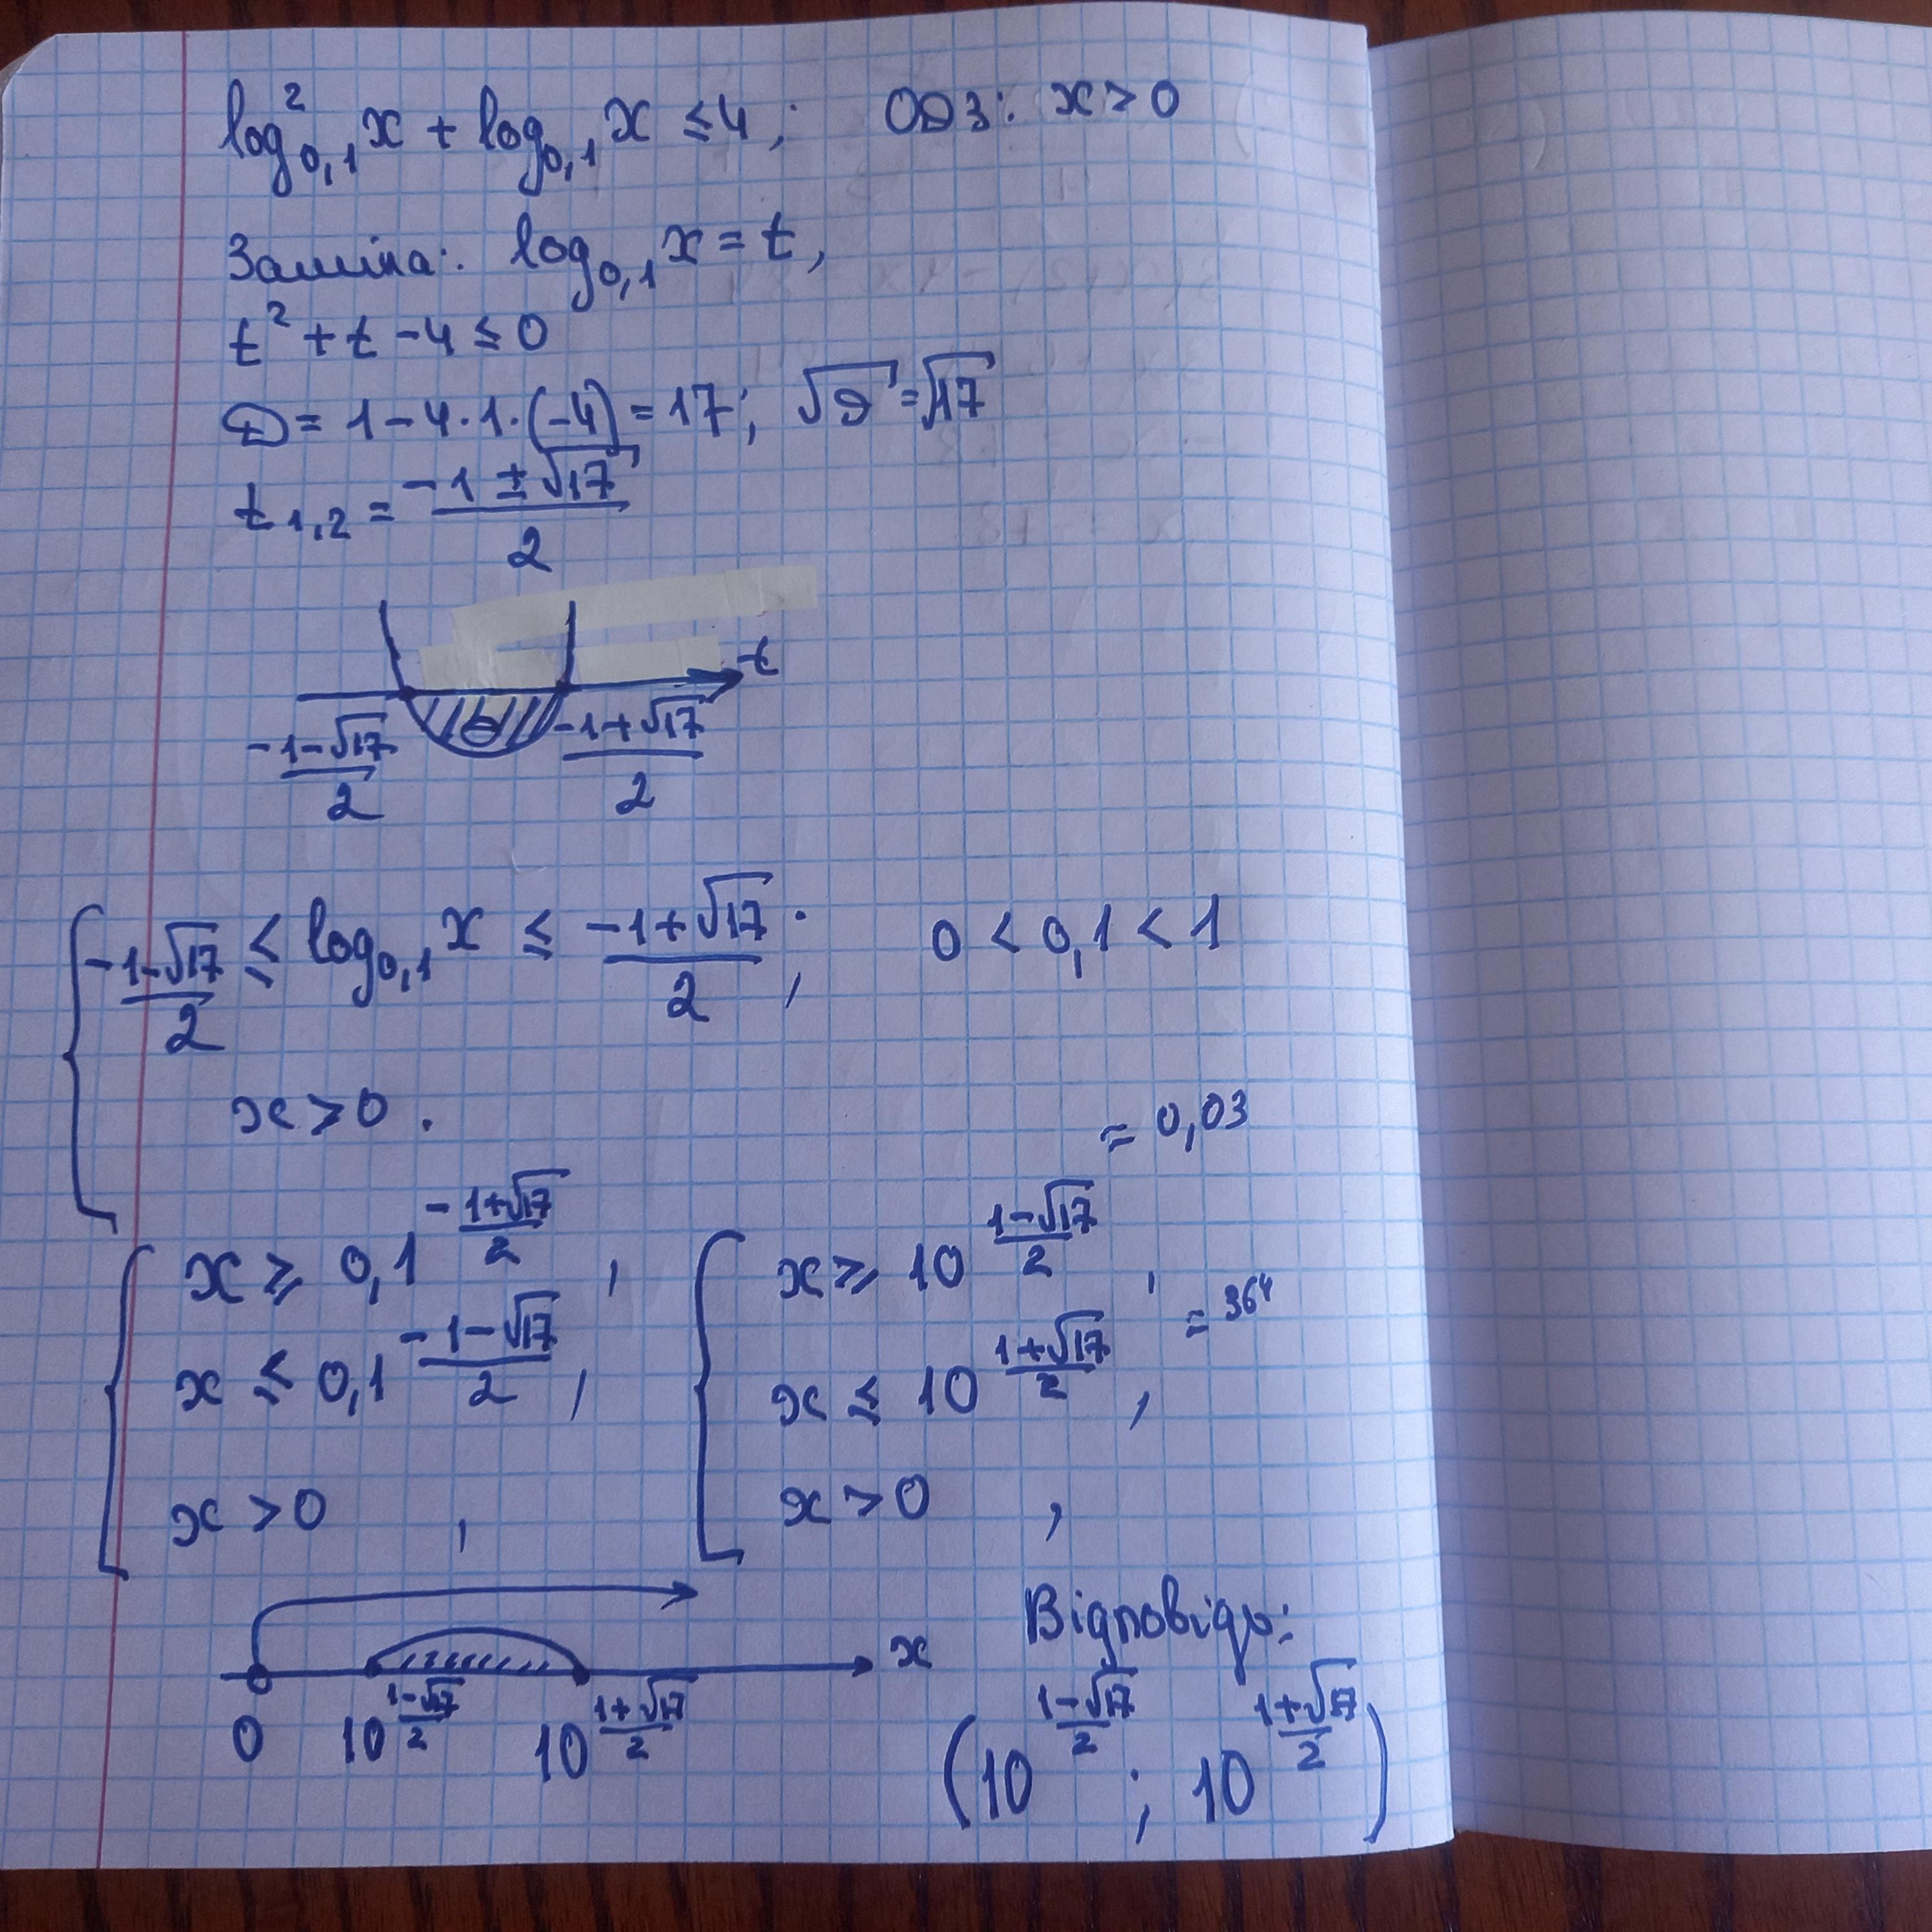 log²₀,₁ x + log₀,₁ x ≤ 4; ОДЗ: x > 0
Заміна: log₀,₁ x = t,
t² + t - 4 ≤ 0
D = 1 - 4·1·(-4) = 17; √D = √17
t₁,₂ = (-1 ± √17)/2
t
(-1-√17)/2 (-1+√17)/2
{ (-1-√17)/2 ≤ log₀,₁ x ≤ (-1+√17)/2; 0 < 0,1 < 1
x > 0.
≈ 0,03
{ x ≥ 0,1^(-(1+√17)/2), { x ≥ 10^((1-√17)/2),
x ≤ 0,1^(-(1-√17)/2), x ≤ 10^((1+√17)/2), ≈ 364
x > 0, x > 0,
x Відповідь:
0 10^((1-√17)/2) 10^((1+√17)/2) (10^((1-√17)/2); 10^((1+√17)/2))